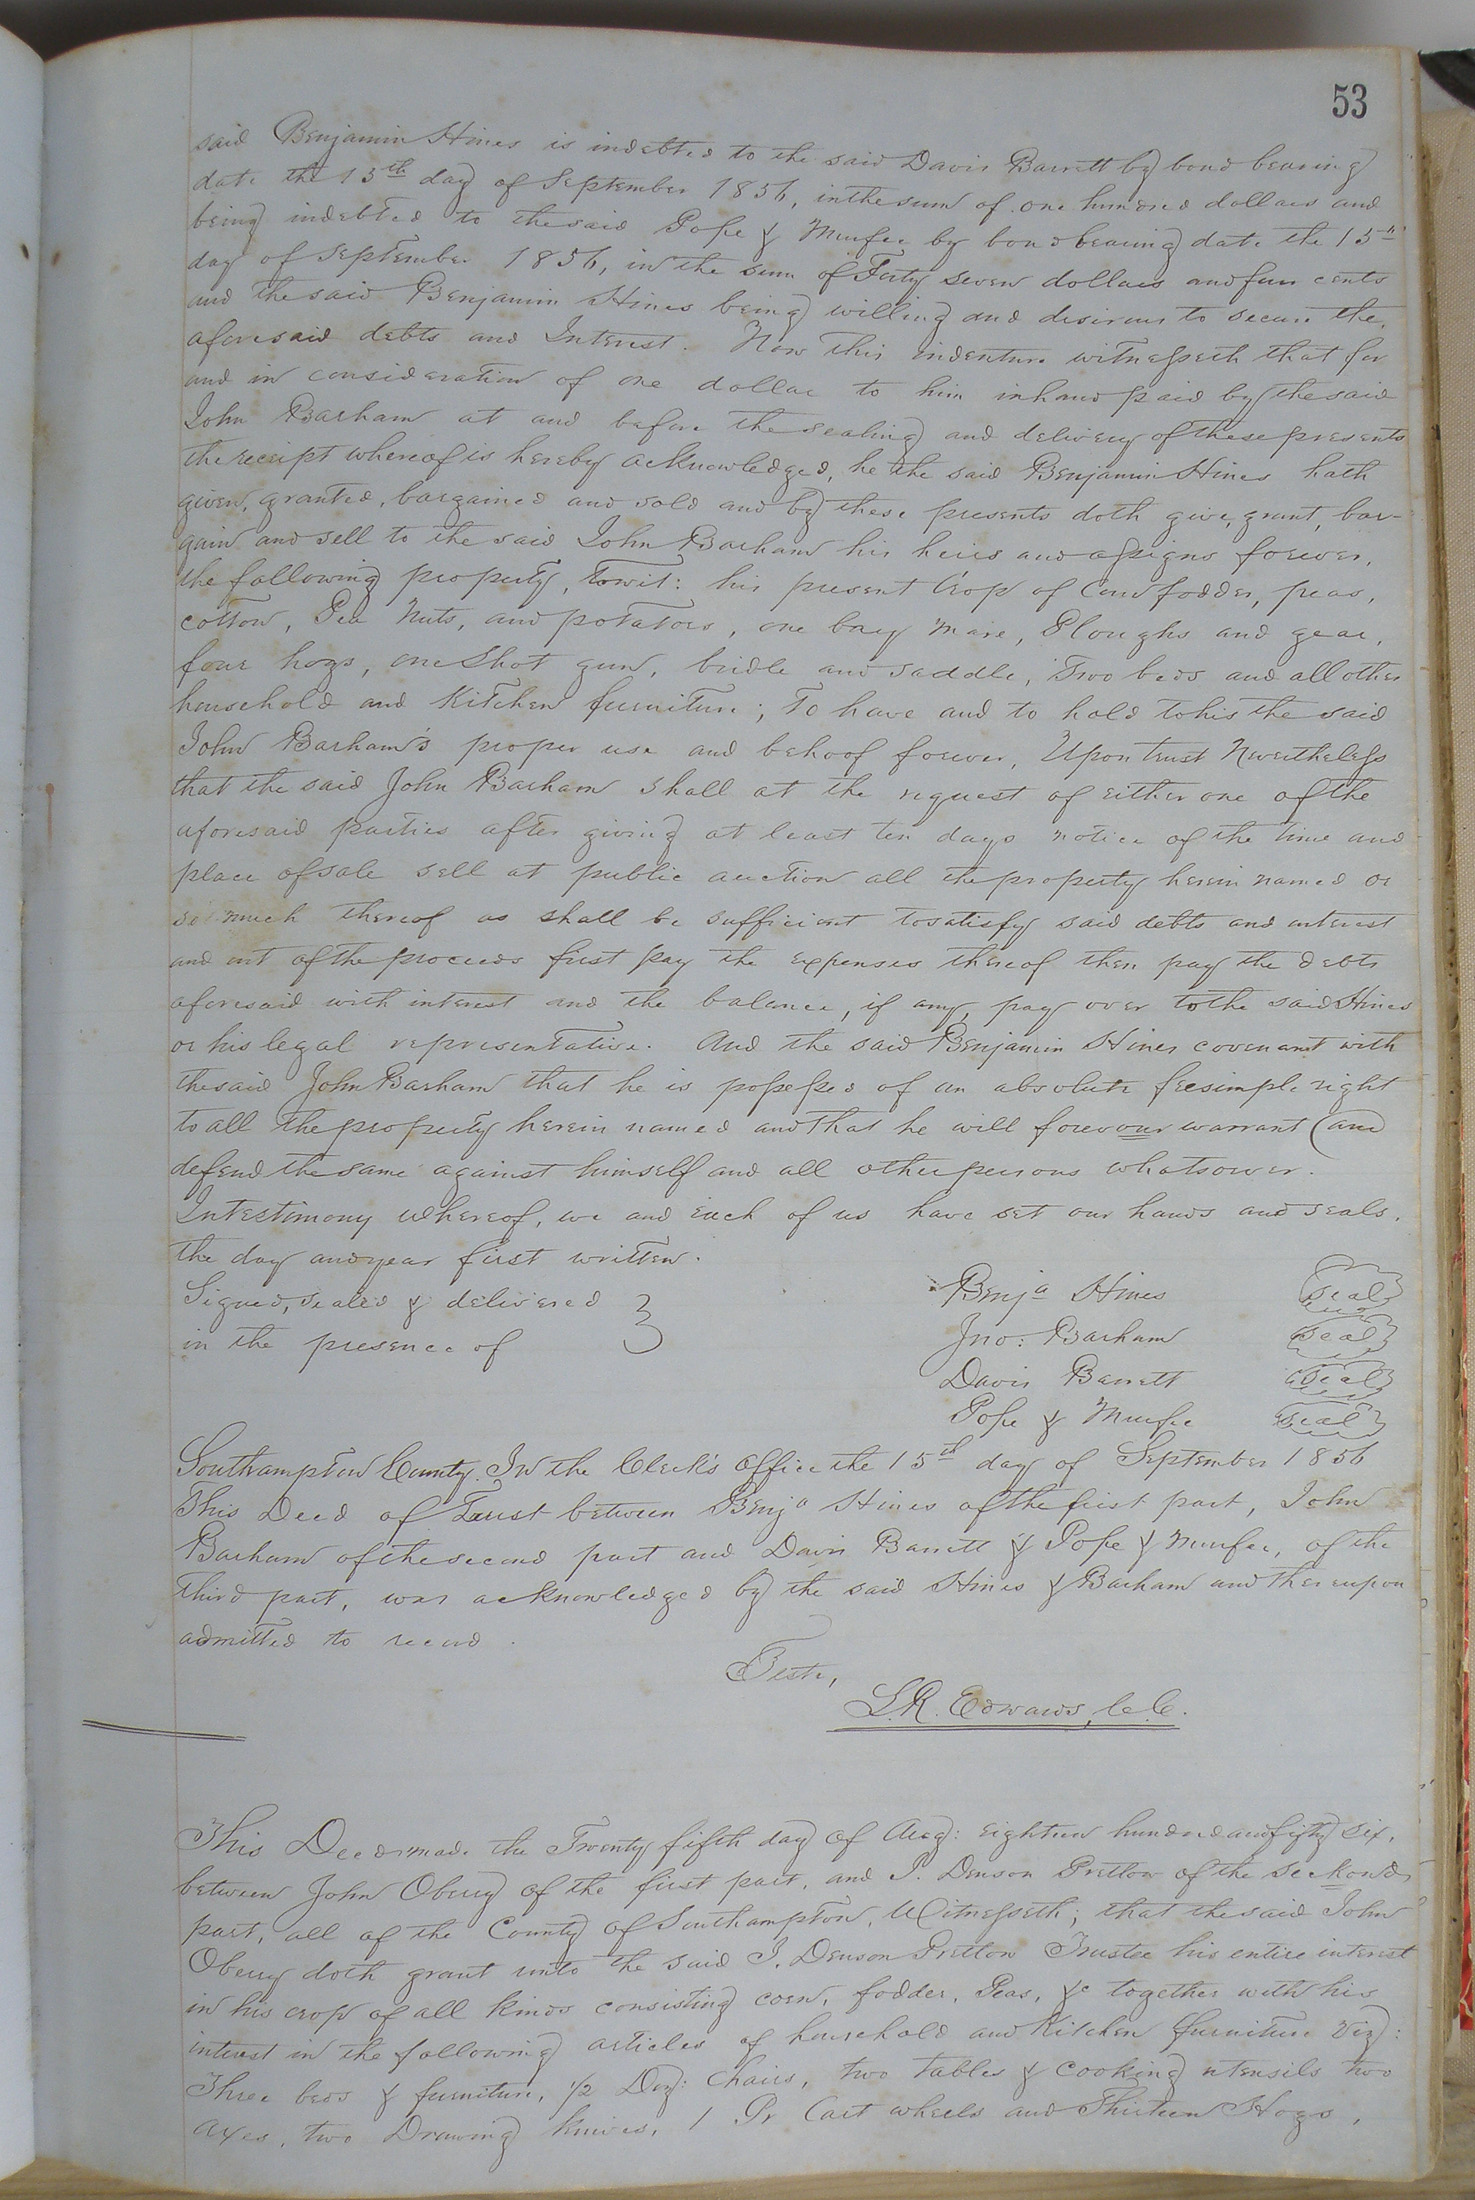 53
said Benjamin Hines is indebted to the said Davis Barrett by bond bearing
date the 15th day of September 1856, in the sum of one hundred dollars and
being indebted to the said Pope & Murfee by bond bearing date the 15th
day of September 1856, in the sum of Forty seven dollars and four cents
and the said Benjamin Hines being willing and desirous to secure the
aforesaid debts and Interest. Now this indenture witnesseth that for
and in consideration of one dollar to him in hand paid by the said
John Barham at and before the sealing and delivery of these presents
the receipt whereof is hereby acknowledged, he the said Benjamin Hines hath
given, granted, bargained and sold and by these presents doth give, grant, bar-
gain and sell to the said John Barham his heirs and assigns forever,
the following property, Towit: his present Crop of Corn fodder, peas,
cotton, Pea Nuts, and potatoes, one bay Mare, Ploughs and gear,
four hogs, one Shot gun, bridle and saddle, Two beds and all other
household and Kitchen furniture; To have and to hold to his the said
John Barham's proper use and behoof forever, Upon trust Nevertheless
that the said John Barham shall at the request of either one of the
aforesaid parties after giving at least ten days notice of the time and
place of sale sell at public auction all the property herein named or
so much thereof as shall be sufficient to satisfy said debts and interest
and out of the proceeds first pay the expenses thereof then pay the debts
aforesaid with interest and the balance, if any, pay over to the said Hines
or his legal representative. And the said Benjamin Hines covenant with
the said John Barham that he is possessed of an absolute fee simple right
to all the property herein named and that he will forevour warrant (and
defend the same against himself and all other persons whatsoever.
In testimony whereof, we and each of us have set our hands and seals,
the day and year first written.
Signed, sealed & delivered }
in the presence of
Benja Hines Seal
Jno: Barham Seal
Davis Barrett Seal
Pope & Murfee Seal
Southampton County. In the Clerk's Office the 15th day of September 1856
This Deed of Trust between Benja Hines of the first part, John
Barham of the second part and Davis Barrett & Pope & Murfee, of the
third part, was acknowledged by the said Hines & Barham and thereupon
admitted to record.
Teste,
L.R. Edwards, C.C.
This Deed made the Twenty fifth day of Aug: eighteen hundred and fifty six,
between John Oberry of the first part, and J. Denson Pretlow of the seckond
part, all of the County of Southampton, Witnesseth; that the said John
Oberry doth grant unto the said J. Denson Pretlow Trustee his entire interest
in his crop of all kinds consisting corn, fodder, Peas, &c together with his
interest in the following articles of household and Kitchen furniture Viz:
Three beds & furniture, 1/2 Doz: Chairs, two tables & cooking utensils two
axes, two Drawing knives, 1 Pr Cart wheels and Thirteen Hogs,